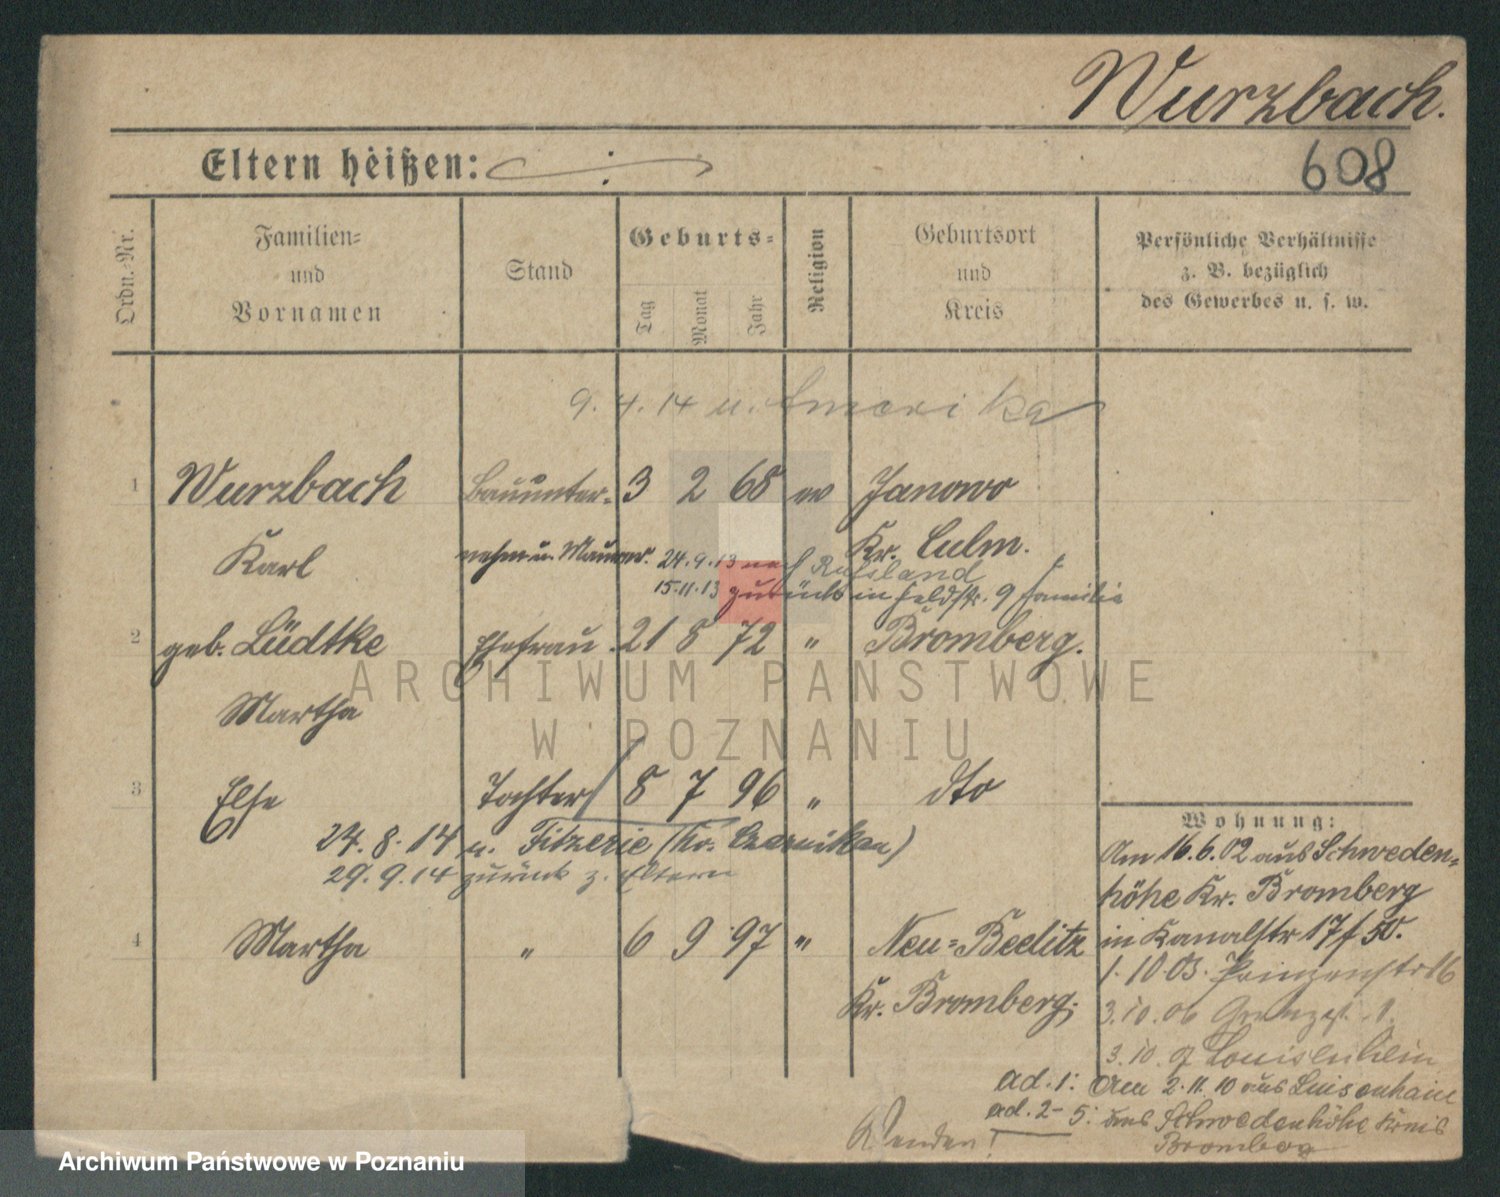 Wurzbach.
Eltern heißen:
608
Ordn.-Nr.
Familien- und Vornamen
Stand
Geburts-
Tag
Monat
Jahr
Religion
Geburtsort und Kreis
Persönliche Verhältnisse
z. B. bezüglich
des Gewerbes u. s. w.
9. 4. 14 n. Amerika
1 Wurzbach Bauunter- 3 2 68 ev Janowo
Karl nehm u. Maurer. Kr. Culm.
24.9.13 nach Russland
15.11.13 zurück in Feldstr. 9 Familie
2 geb. Lüdtke Ehefrau. 21 8 72 " Bromberg.
Martha
ARCHIWUM PAŃSTWOWE
W POZNANIU
3 Else Tochter 8 7 96 " dto
24. 8. 14 n. Fitzerie (Kr. Czarnikau)
29. 9. 14 zurück z. Eltern
4 Martha " 6 9 97 " Neu-Beelitz
Kr. Bromberg.
Wohnung:
Am 16.6.02 aus Schweden-
höhe Kr. Bromberg
in Kanalstr 17 f 50.
1. 10 03. Prinzenstr 16
3. 10. 06 1.
3. 10. Louisenhein
ad. 1: Am 2. 11. 10 aus Luisenhain
ad. 2-5: aus Schwedenhöhe Kreis
Bromberg
Wenden!
Archiwum Państwowe w Poznaniu